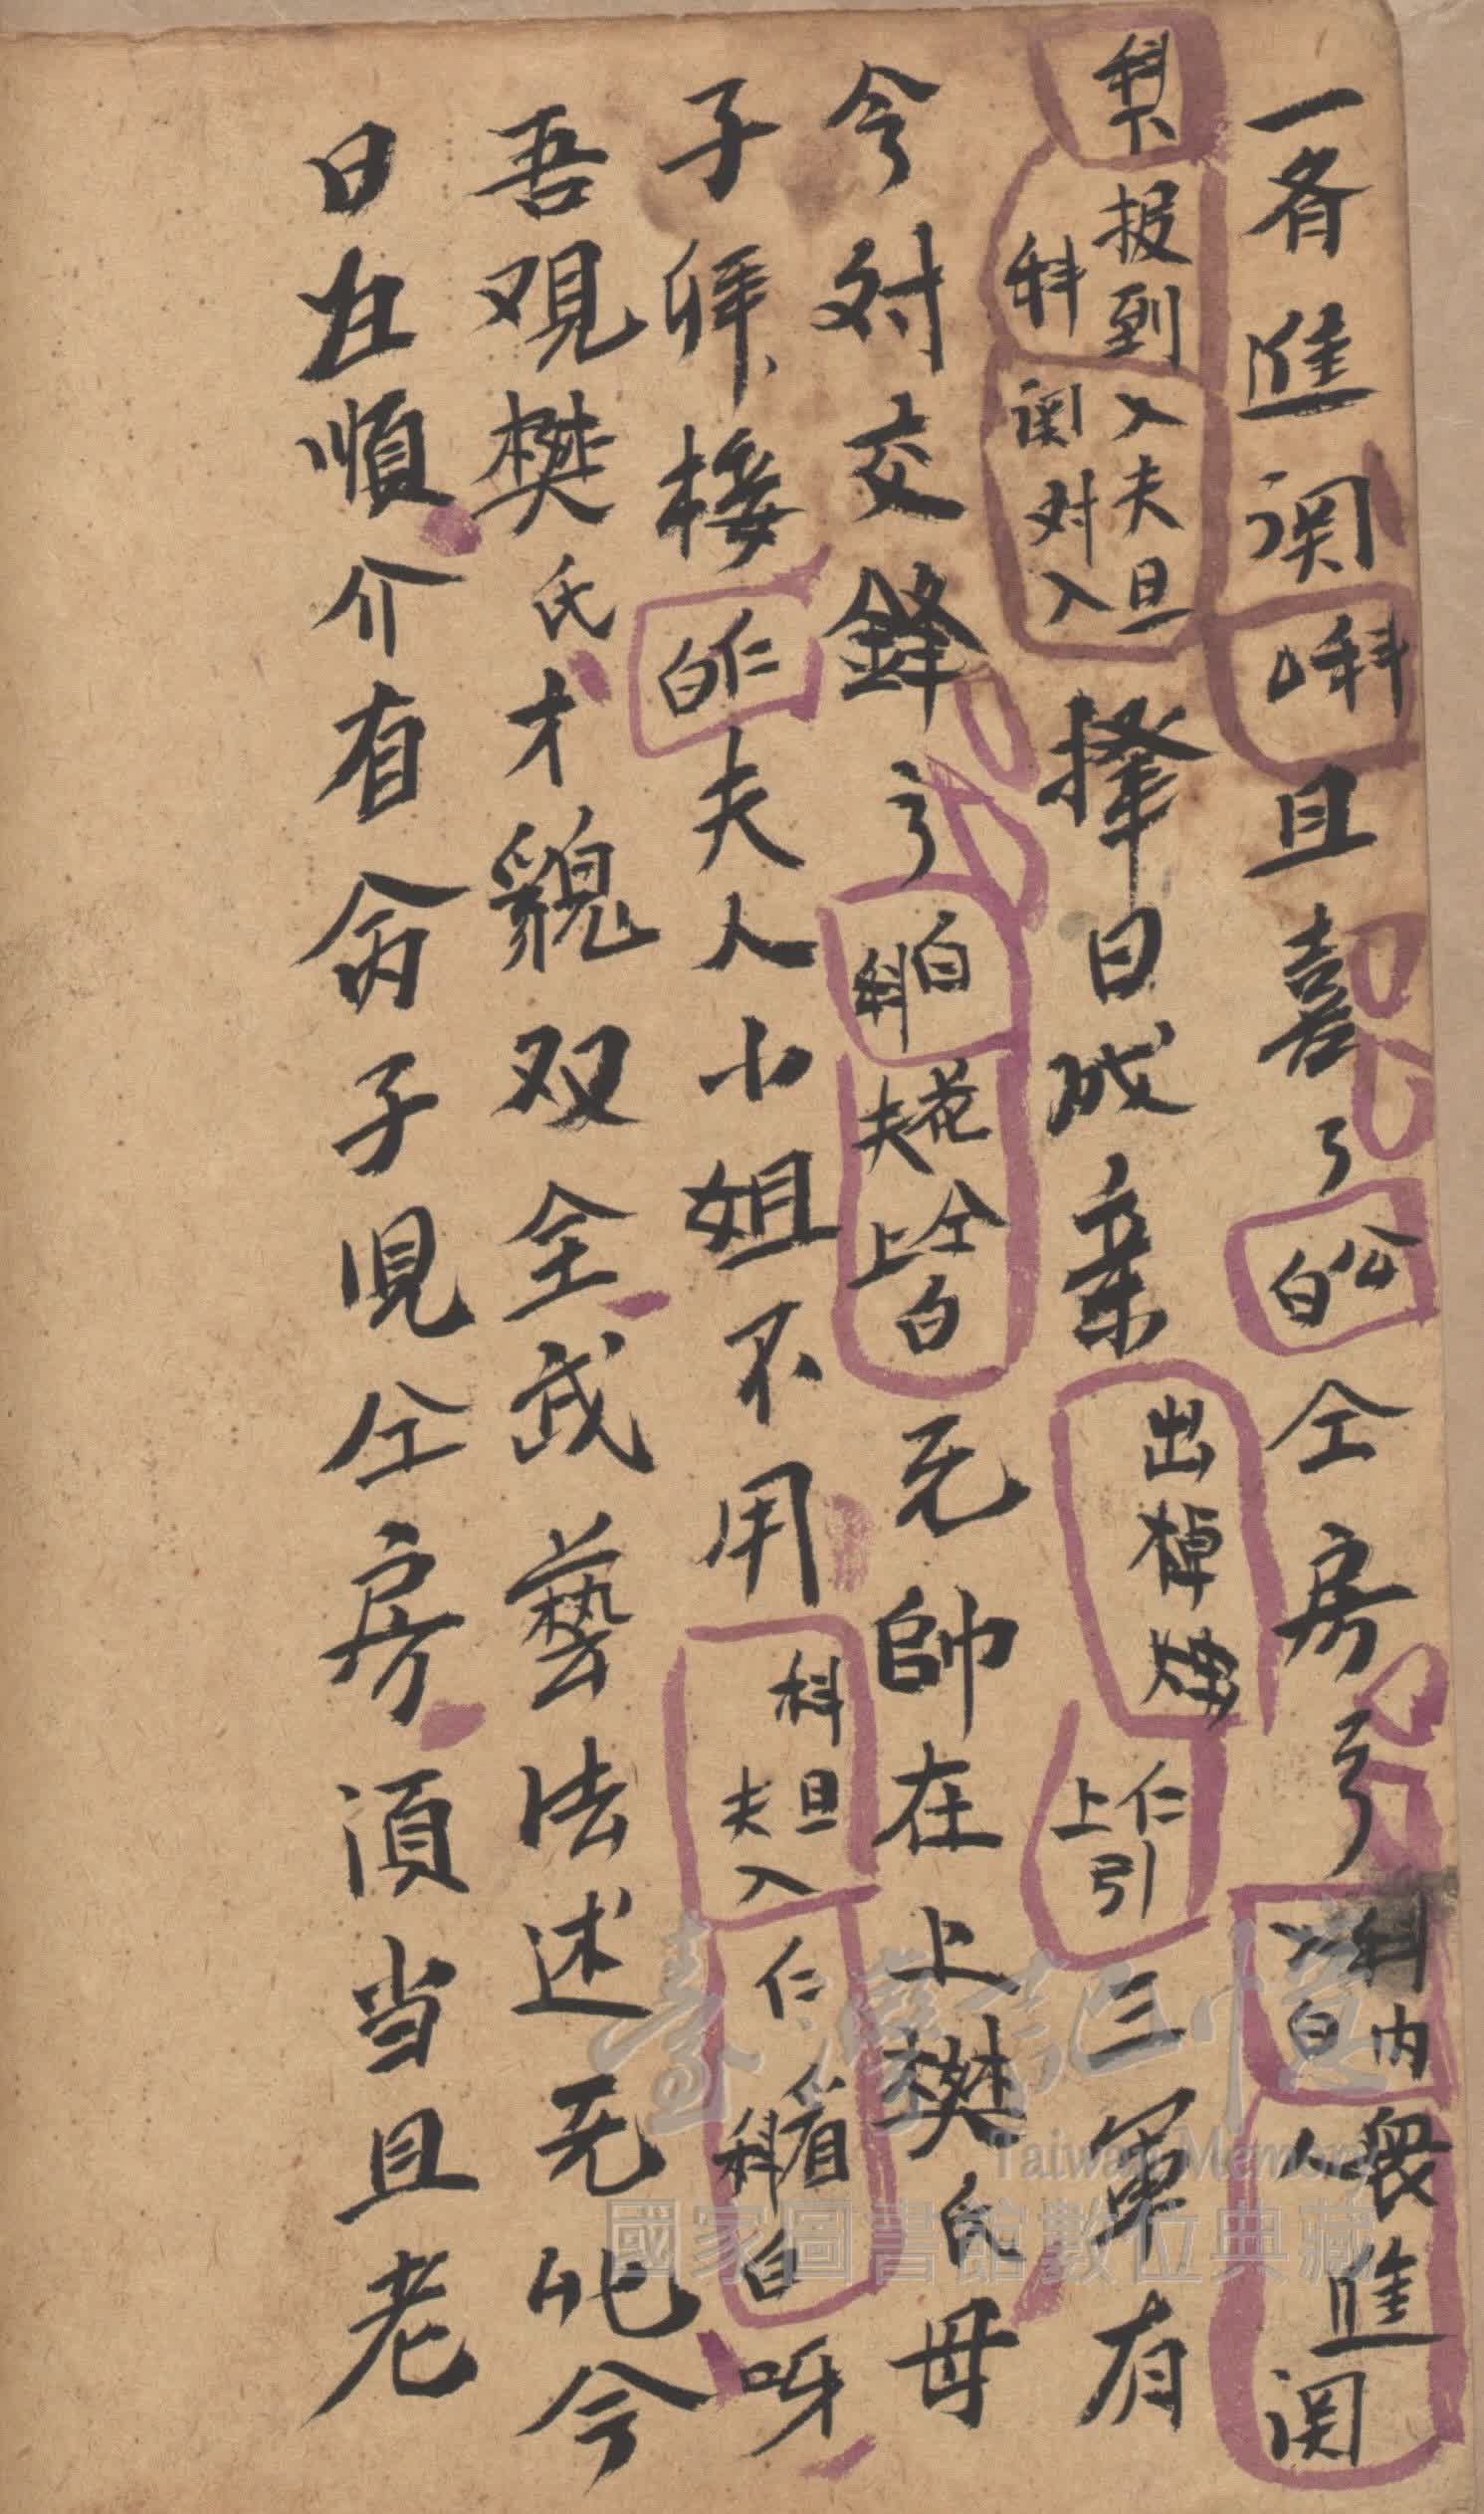 一齐進関科介且喜了公白仝房了科内介白衆人進関
科下报到科入夫旦関对入擇日成亲出棹灯仁引上三軍有
令对交鋒了白科花仝夫上白元帥在上樊氏母
子拜接仁白夫人小姐不用科旦夫入仁看科白呀
吾观樊氏才貌双全武藝法述无比今
日在順介有命子児仝房須当且老
臺灣記憶
Taiwan Memory
國家圖書館數位典藏